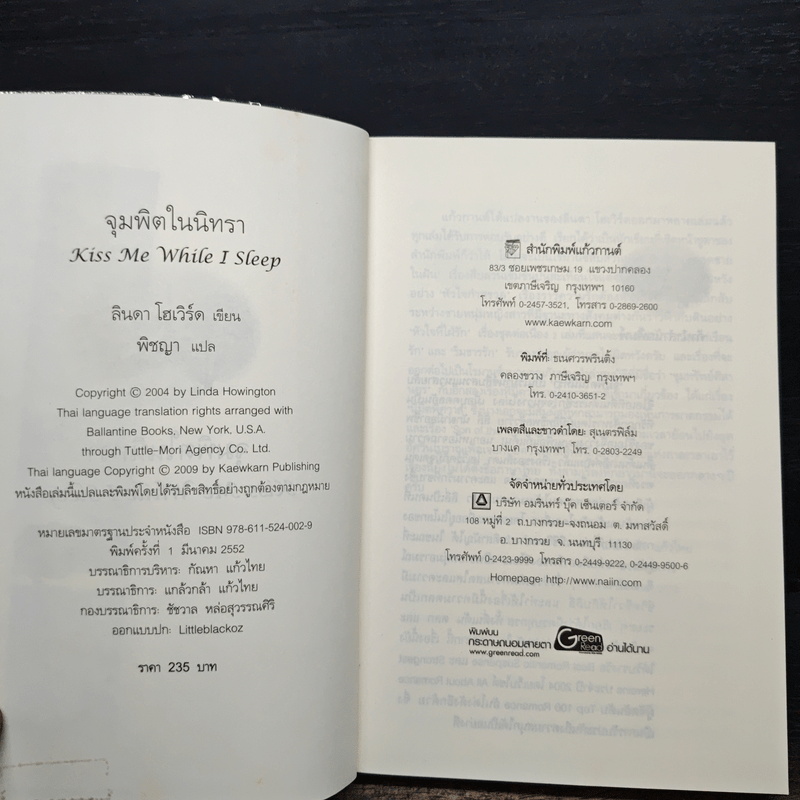 จุมพิตในนิทรา
Kiss Me While I Sleep
ลินดา โฮเวิร์ด เขียน
พิชญา แปล
Copyright © 2004 by Linda Howington
Thai language translation rights arranged with
Ballantine Books, New York, U.S.A.
through Tuttle-Mori Agency Co., Ltd.
Thai language Copyright © 2009 by Kaewkarn Publishing
หนังสือเล่มนี้แปลและพิมพ์โดยได้รับลิขสิทธิ์อย่างถูกต้องตามกฎหมาย
หมายเลขมาตรฐานประจำหนังสือ ISBN 978-611-524-002-9
พิมพ์ครั้งที่ 1 มีนาคม 2552
บรรณาธิการบริหาร: กัณหา แก้วไทย
บรรณาธิการ: แกล้วกล้า แก้วไทย
กองบรรณาธิการ: ชัชวาล หล่อสุวรรณศิริ
ออกแบบปก: Littleblackoz
ราคา 235 บาท
สำนักพิมพ์แก้วกานต์
83/3 ซอยเพชรเกษม 19 แขวงปากคลอง
เขตภาษีเจริญ กรุงเทพฯ 10160
โทรศัพท์ 0-2457-3521, โทรสาร 0-2869-2600
www.kaewkarn.com
พิมพ์ที่: ธเนศวรพรินติ้ง
คลองขวาง ภาษีเจริญ กรุงเทพฯ
โทร. 0-2410-3651-2
เพลตสีและขาวดำโดย: สุเนตรฟิล์ม
บางแค กรุงเทพฯ โทร. 0-2803-2249
จัดจำหน่ายทั่วประเทศโดย
บริษัท อมรินทร์ บุ๊ค เซ็นเตอร์ จำกัด
108 หมู่ที่ 2 ถ.บางกรวย-จงถนอม ต. มหาสวัสดิ์
อ. บางกรวย จ. นนทบุรี 11130
โทรศัพท์ 0-2423-9999 โทรสาร 0-2449-9222, 0-2449-9500-6
Homepage: http://www.naiin.com
พิมพ์บน
กระดาษถนอมสายตา Green Read อ่านได้นาน
www.greenread.com